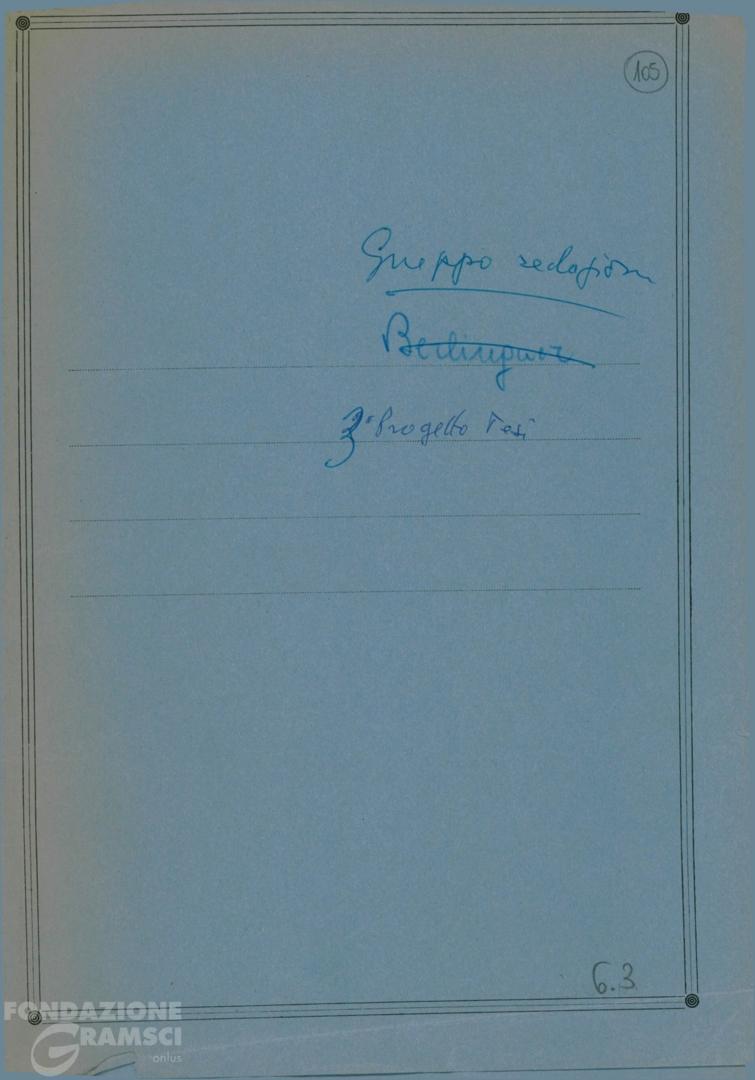 105
Gruppo redazione
Berlinguer
3° Progetto Tesi
6.3
FONDAZIONE
GRAMSCI
onlus